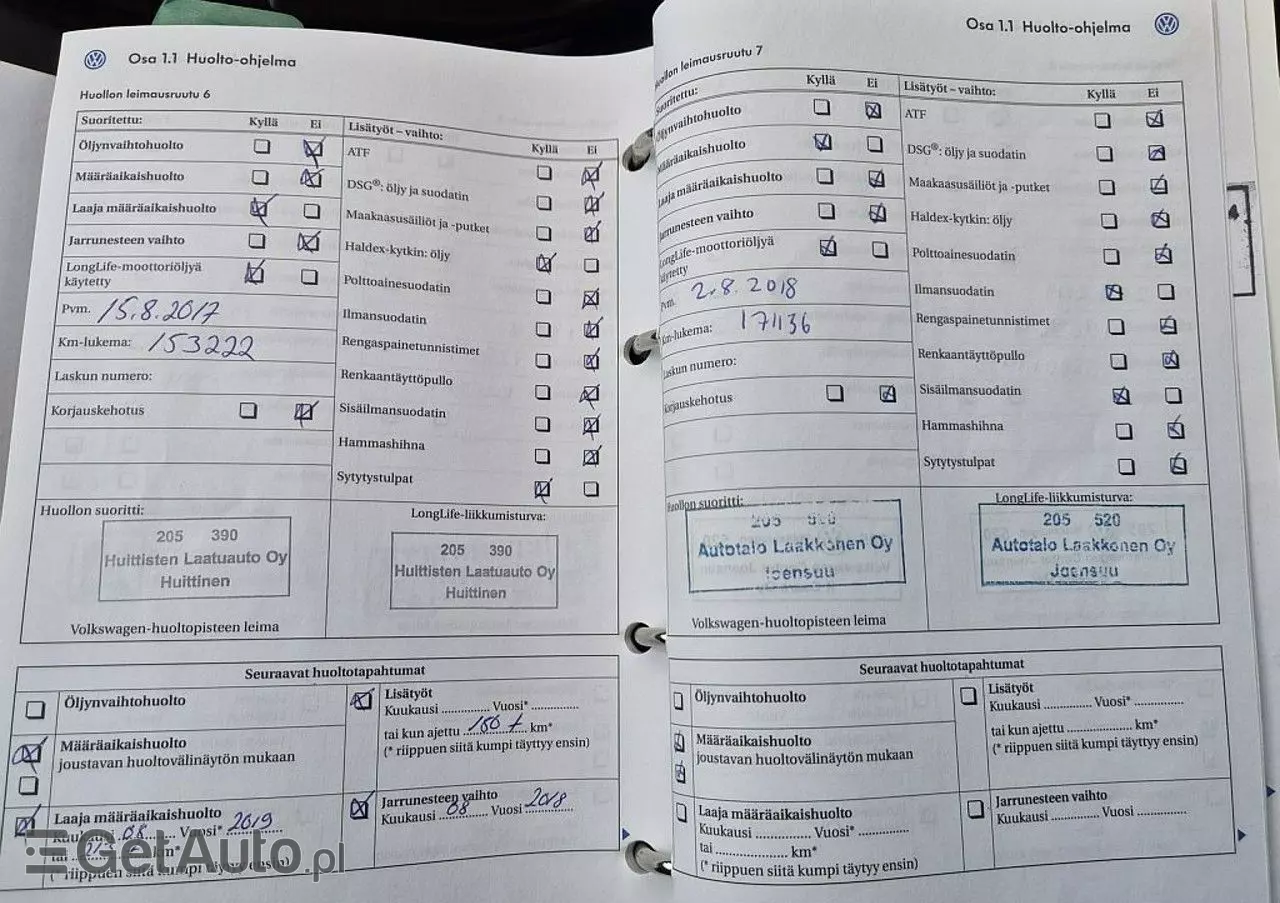 Osa 1.1 Huolto-ohjelma
Huollon leimausruutu 6
Suoritettu: Kyllä Ei
Öljynvaihtohuolto
Määräaikaishuolto
Laaja määräaikaishuolto
Jarrunesteen vaihto
LongLife-moottoriöljyä
käytetty
Pvm. 15.8.2017
Km-lukema: 153222
Laskun numero:
Korjauskehotus
Lisätyöt – vaihto: Kyllä Ei
ATF
DSG®: öljy ja suodatin
Maakaasusäiliöt ja -putket
Haldex-kytkin: öljy
Polttoainesuodatin
Ilmansuodatin
Rengaspainetunnistimet
Renkaantäyttöpullo
Sisäilmansuodatin
Hammashihna
Sytytystulpat
Huollon suoritti:
205 390
Huittisten Laatuauto Oy
Huittinen
LongLife-liikkumisturva:
205 390
Huittisten Laatuauto Oy
Huittinen
Volkswagen-huoltopisteen leima
Seuraavat huoltotapahtumat
Öljynvaihtohuolto
Määräaikaishuolto
joustavan huoltovälinäytön mukaan
Laaja määräaikaishuolto
Kuukausi 08 Vuosi* 2019
tai km*
(* riippuen siitä kumpi täyttyy ensin)
Lisätyöt
Kuukausi .............. Vuosi* ..............
tai kun ajettu 180 t km*
(* riippuen siitä kumpi täyttyy ensin)
Jarrunesteen vaihto
Kuukausi 08 Vuosi 2018
Osa 1.1 Huolto-ohjelma
Huollon leimausruutu 7
Suoritettu: Kyllä Ei
Öljynvaihtohuolto
Määräaikaishuolto
Laaja määräaikaishuolto
Jarrunesteen vaihto
LongLife-moottoriöljyä
käytetty
Pvm. 2.8.2018
Km-lukema: 171136
Laskun numero:
Korjauskehotus
Lisätyöt – vaihto: Kyllä Ei
ATF
DSG®: öljy ja suodatin
Maakaasusäiliöt ja -putket
Haldex-kytkin: öljy
Polttoainesuodatin
Ilmansuodatin
Rengaspainetunnistimet
Renkaantäyttöpullo
Sisäilmansuodatin
Hammashihna
Sytytystulpat
Huollon suoritti:
205 520
Autotalo Laakkonen Oy
Joensuu
LongLife-liikkumisturva:
205 520
Autotalo Laakkonen Oy
Joensuu
Volkswagen-huoltopisteen leima
Seuraavat huoltotapahtumat
Öljynvaihtohuolto
Määräaikaishuolto
joustavan huoltovälinäytön mukaan
Laaja määräaikaishuolto
Kuukausi .............. Vuosi* ..............
tai .................... km*
(* riippuen siitä kumpi täyttyy ensin)
Lisätyöt
Kuukausi .............. Vuosi* ..............
tai kun ajettu .................. km*
(* riippuen siitä kumpi täyttyy ensin)
Jarrunesteen vaihto
Kuukausi .............. Vuosi ..............
4
GetAuto.pl